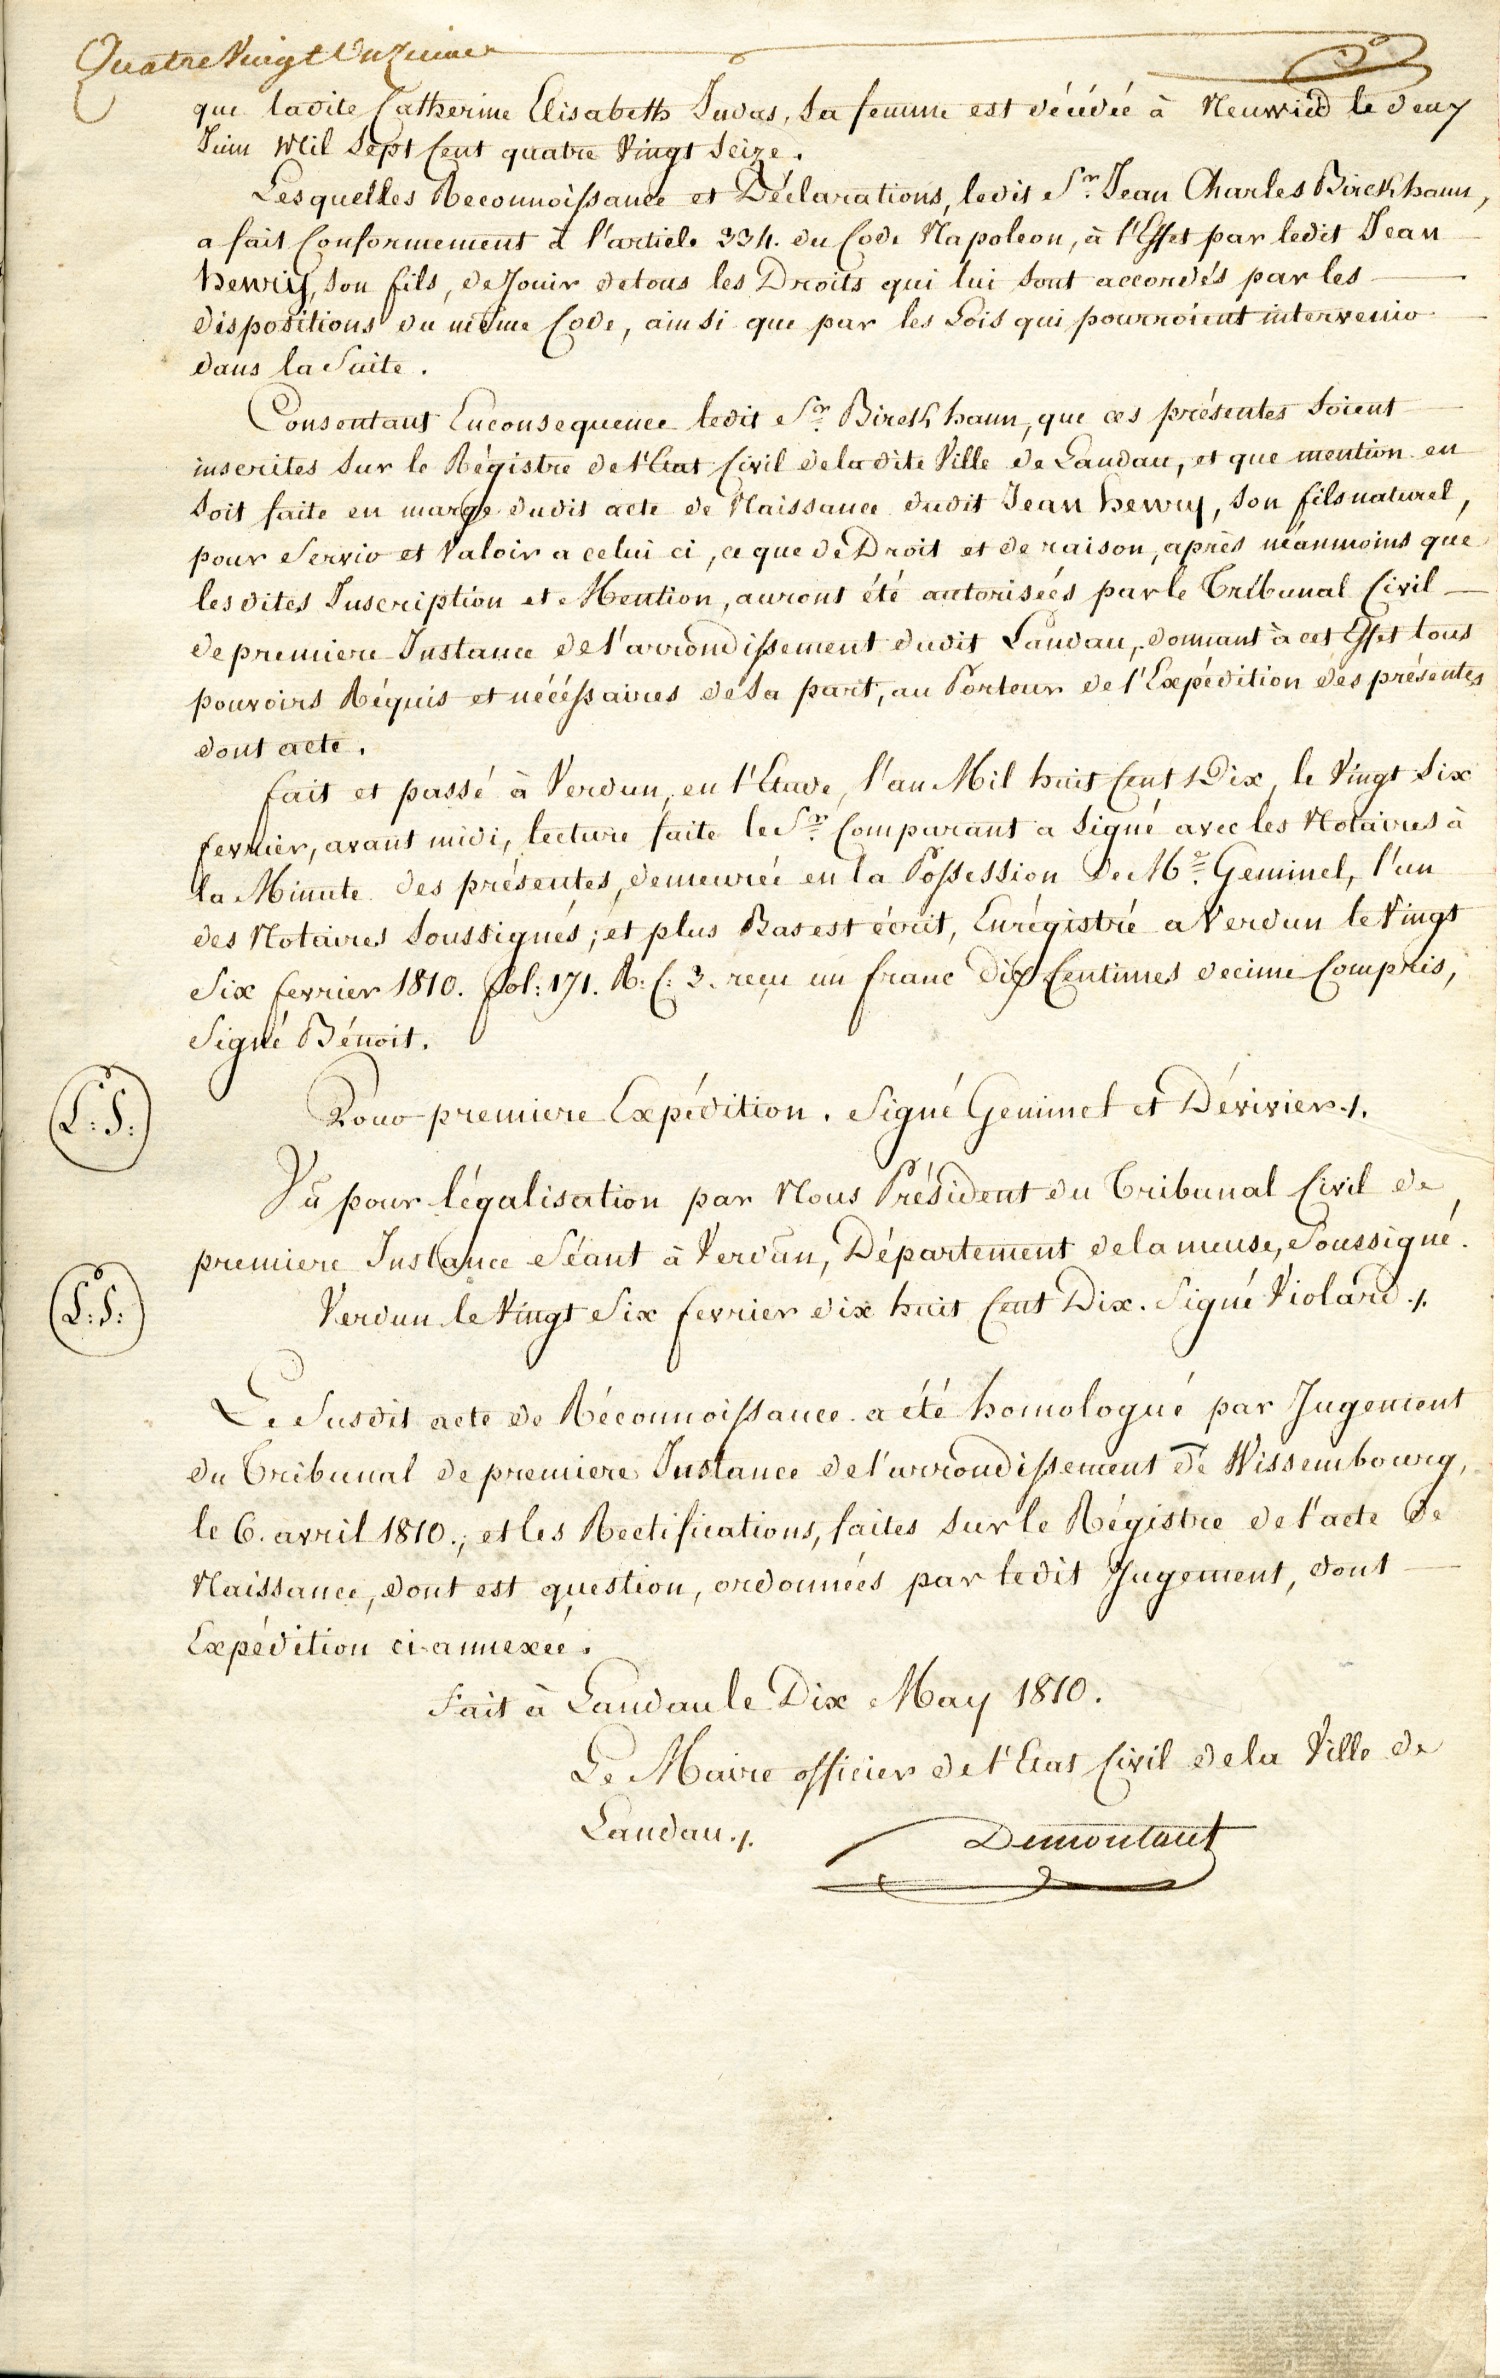 Quatre Vingt Onzieme
que ladite Catherine Elisabeth Judas, Sa femme est décédée à Neuwied le deux
Juin Mil Sept Cent quatre Vingt Seize.
Lesquelles Reconnoissance et Déclarations, ledit Sr. Jean Charles Birckhann,
a fait Conformement à l'article 334. du Code Napoleon, à l'Effet par ledit Jean
henry, son fils, de Jouir de tous les Droits qui lui sont accordés par les
dispositions du même Code, ainsi que par les Lois qui pourroient intervenir
dans la Suite.
Consentant Enconsequence ledit Sr. Birckhann, que ces présentes Soient
inscrites Sur le Régistre de l'Etat Civil de ladite Ville de Landau, et que mention en
Soit faite en marge dudit acte de Naissance dudit Jean henry, Son fils naturel,
pour Servir et Valoir a celui ci, ce que de Droit et de raison, après néanmoins que
les dites Inscription et Mention, auront été autorisées par le Tribunal Civil
de premiere Instance de l'arrondissement dudit Landau, donnant à cet Effet tous
pouvoirs Réquis et nécéssaires de Sa part, au Porteur de l'Expédition des présentes
dont acte.
fait et passé à Verdun, en l'Etude, l'an Mil huit Cent Dix, le Vingt Six
fevrier, avant midi, lecture faite le Sr. Comparant a Signé avec les Notaires à
la Minute des présentes, demeurée en la Possession de Me. Geminel, l'un
des Notaires Soussignés; et plus Bas est écrit, Enrégistré a Verdun le Vingt
Six fevrier 1810. fol: 171. R: C: 3. reçu un franc dix Centimes decime Compris,
Signé Bénoit.
L: S:
Pour premiere Expédition. Signé Geminel et Dérivier./.
Vu pour légalisation par Nous Président du Tribunal Civil de
premiere Instance Séant à Verdun, Département de la meuse, Soussigné.
L: S:
Verdun le Vingt Six fevrier dix huit Cent Dix. Signé Violard./.
Le Susdit acte de Réconnoissance a été homologué par Jugement
du Tribunal de premiere Instance de l'arrondissement de Wissembourg,
le 6. avril 1810.; et les Rectifications, faites Sur le Régistre de l'acte de
Naissance, dont est question, ordonnées par ledit Jugement, dont
Expédition ci-annexée.
Fait à Landau le Dix May 1810.
Le Maire officier de l'Etat Civil de la Ville de
Landau./.
Demontant